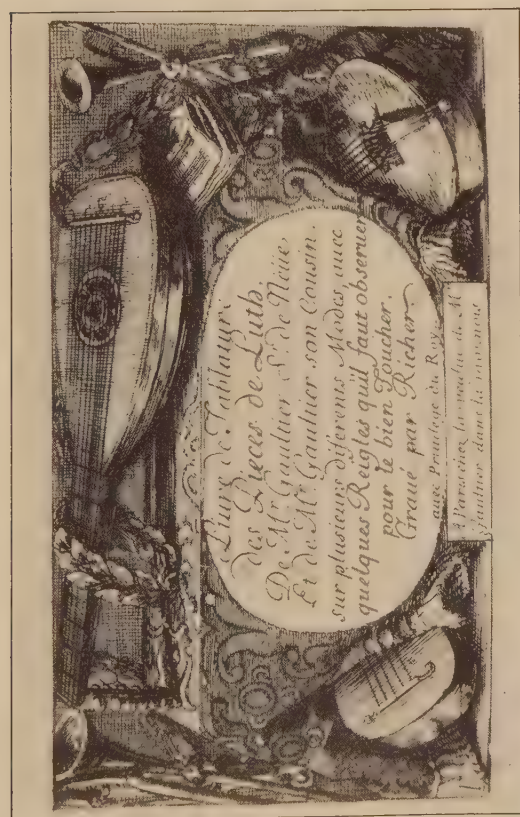 Liure de Tablature
des Pieces de Luth,
De Mr. Gaultier Sr. de Neüe
Et de Mr. Gaultier son Cousin.
sur plusieurs diferents Modes, auec
quelques Reigles quil faut obseruer
pour le bien Toucher.
Graué par Richer
auec Priuilege du Roy
A Paris chez la veufue de Mr.
Gaultier dans la